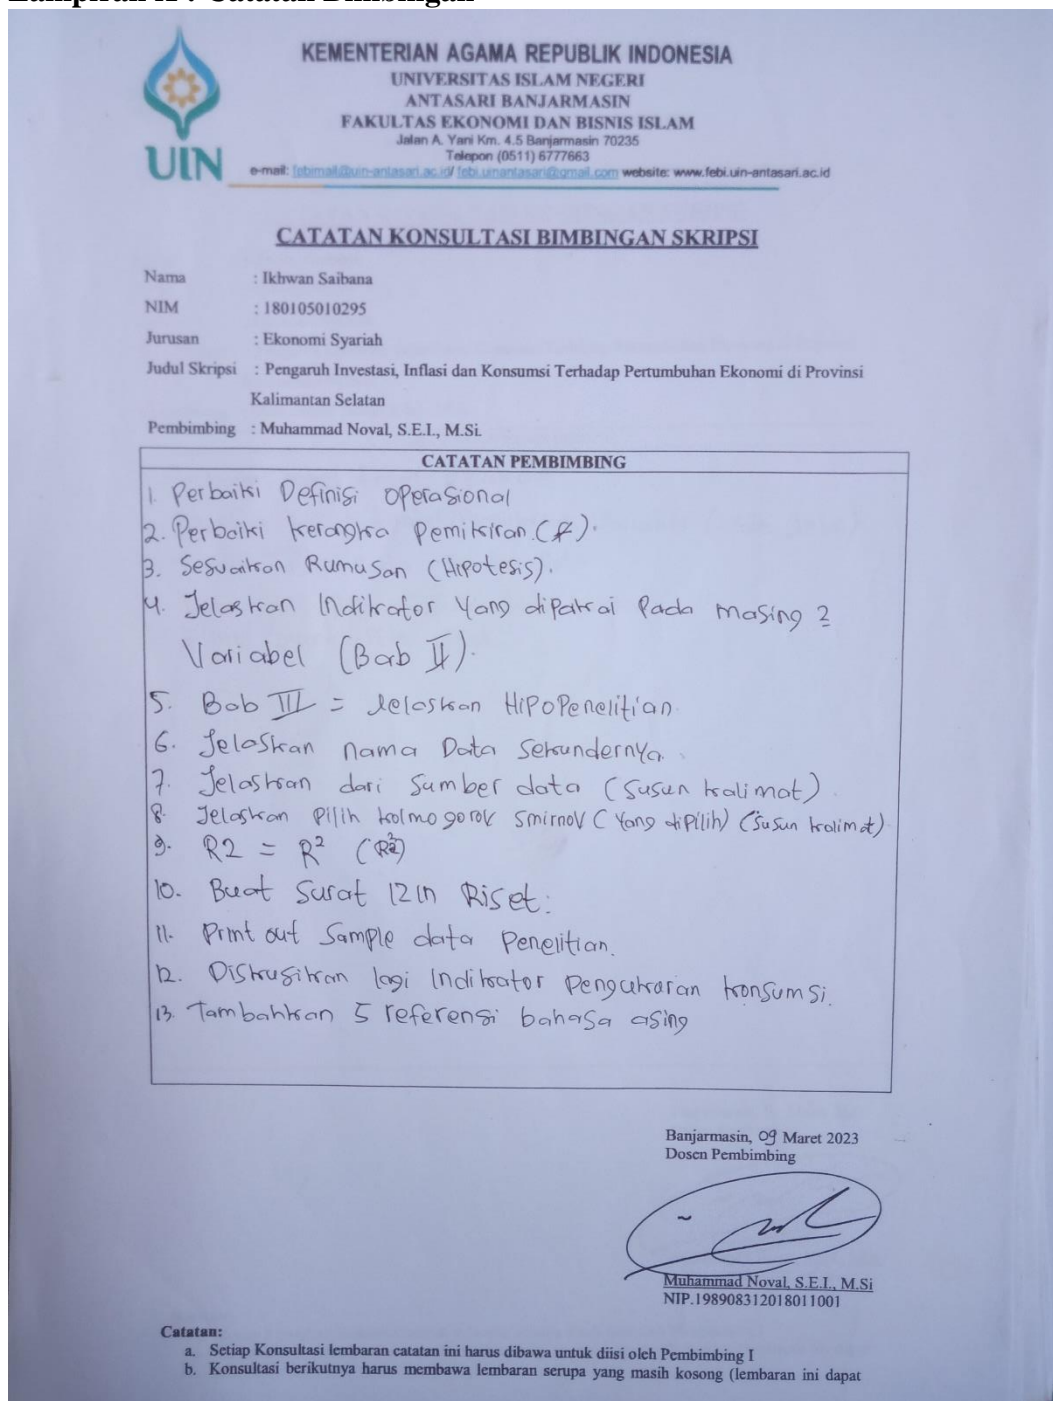 KEMENTERIAN AGAMA REPUBLIK INDONESIA
UNIVERSITAS ISLAM NEGERI
ANTASARI BANJARMASIN
FAKULTAS EKONOMI DAN BISNIS ISLAM
Jalan A. Yani Km. 4.5 Banjarmasin 70235
Telepon (0511) 6777663
UIN
e-mail: febimail@uin-antasari.ac.id/ febi.uinantasari@gmail.com website: www.febi.uin-antasari.ac.id
CATATAN KONSULTASI BIMBINGAN SKRIPSI
Nama : Ikhwan Saibana
NIM : 180105010295
Jurusan : Ekonomi Syariah
Judul Skripsi : Pengaruh Investasi, Inflasi dan Konsumsi Terhadap Pertumbuhan Ekonomi di Provinsi
Kalimantan Selatan
Pembimbing : Muhammad Noval, S.E.I., M.Si.
CATATAN PEMBIMBING
1. Perbaiki Definisi Operasional
2. Perbaiki Kerangka Pemikiran.
3. Sesuaikan Rumusan (Hipotesis).
4. Jelaskan Indikator Yang dipakai Pada masing 2
Variabel (Bab II).
5. Bab III = Jelaskan HipoPenelitian.
6. Jelaskan nama Data Sekundernya.
7. Jelaskan dari Sumber data (Susun kalimat).
8. Jelaskan Pilih kolmogorov Smirnov (Yang dipilih) (Susun kalimat)
9. R2 = R² (R²)
10. Buat Surat Izin Riset.
11. Print out Sample data Penelitian.
12. Diskusikan lagi Indikator Pengukuran konsumsi.
13. Tambahkan 5 referensi bahasa asing
Banjarmasin, 09 Maret 2023
Dosen Pembimbing
Muhammad Noval, S.E.I., M.Si
NIP.198908312018011001
Catatan:
a. Setiap Konsultasi lembaran catatan ini harus dibawa untuk diisi oleh Pembimbing I
b. Konsultasi berikutnya harus membawa lembaran serupa yang masih kosong (lembaran ini dapat